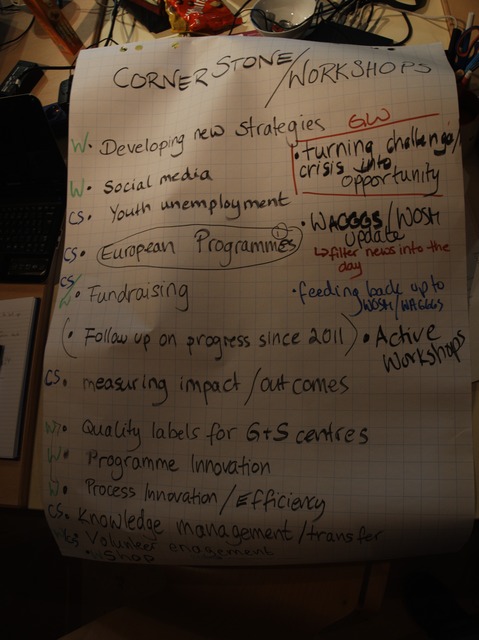 CORNERSTONE/WORKSHOPS
W • Developing new strategies
W • Social media
CS • Youth unemployment
CS • European Programmes
CS W • Fundraising
( • Follow up on progress since 2011)
CS • measuring impact/outcomes
• Quality labels for G+S centres
W • Programme Innovation
• Process Innovation/Efficiency
CS • Knowledge management/transfer
• Volunteer enagement
• Shop
GW
• turning challenge/
crisis into
opportunity
• WAGGGS/WOSM
update
↳ filter news into the
day
• feeding back up to
WOSM/WAGGGS
• Active
Workshops